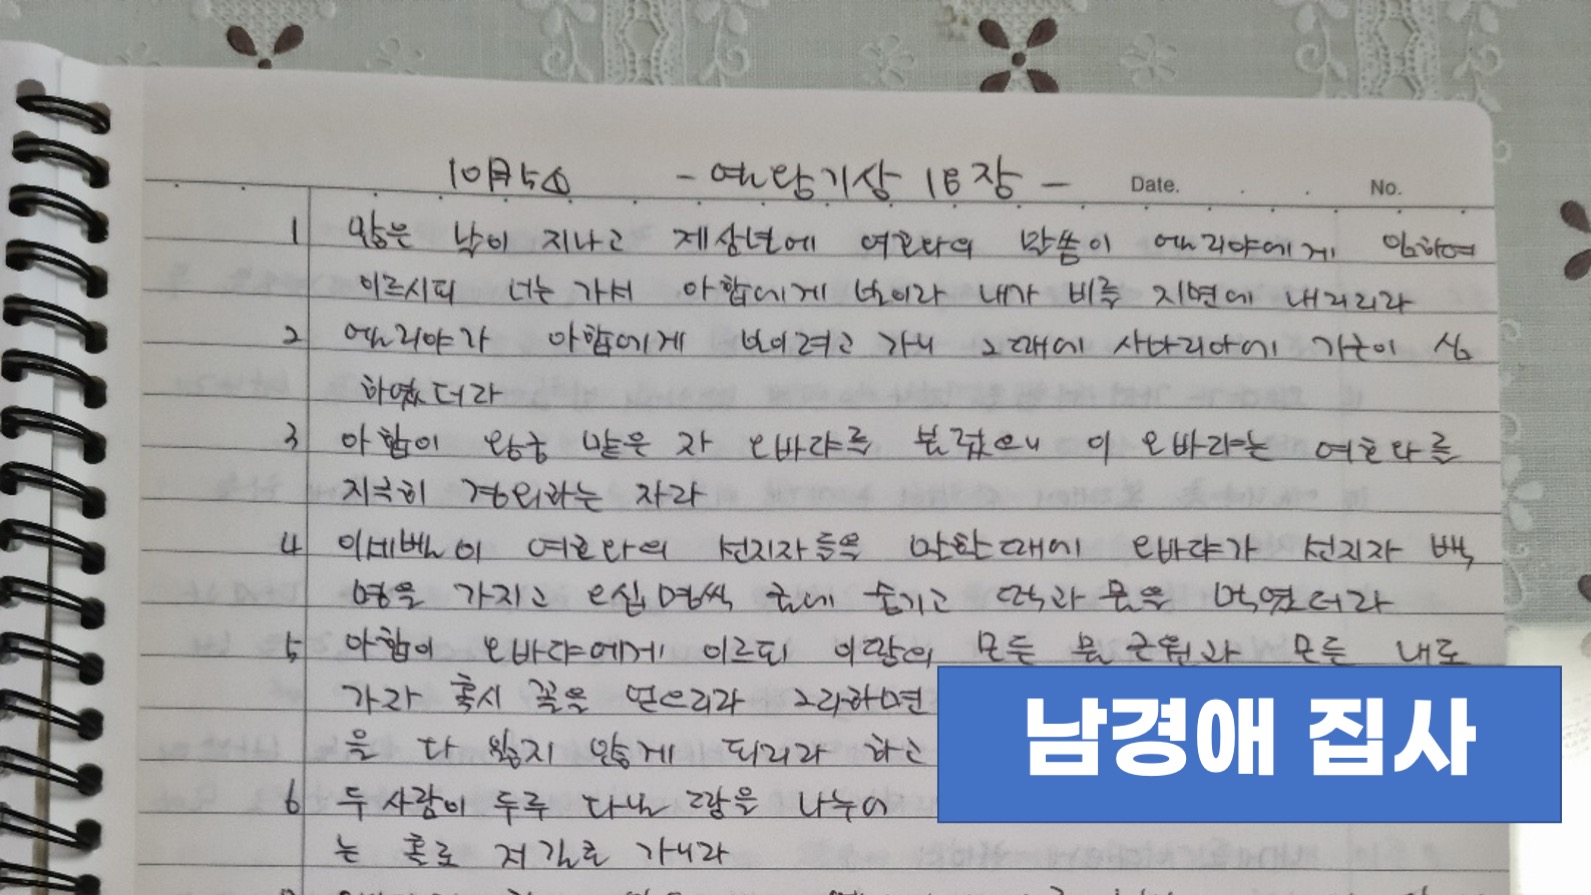 -열왕기상 18장- Date. No.
1 많은 날이 지나고 제삼년에 여호와의 말씀이 엘리야에게 임하여
이르시되 너는 가서 아합에게 보이라 내가 비를 지면에 내리리라
2 엘리야가 아합에게 보이려고 가니 그때에 사마리아에 기근이 심
하였더라
3 아합이 왕궁 맡은 자 오바댜를 불렀으니 이 오바댜는 여호와를
지극히 경외하는 자라
4 이세벨이 여호와의 선지자들을 멸할 때에 오바댜가 선지자 백
명을 가지고 오십 명씩 굴에 숨기고 떡과 물을 먹였더라
5 아합이 오바댜에게 이르되 이 땅의 모든 물 근원과 모든 내로
가자 혹시 꼴을 얻으리라 그리하면
을 다 잃지 않게 되리라 하고
6 두 사람이 두루 다닐 땅을 나누어
는 홀로 저 길로 가니라
남경애 집사